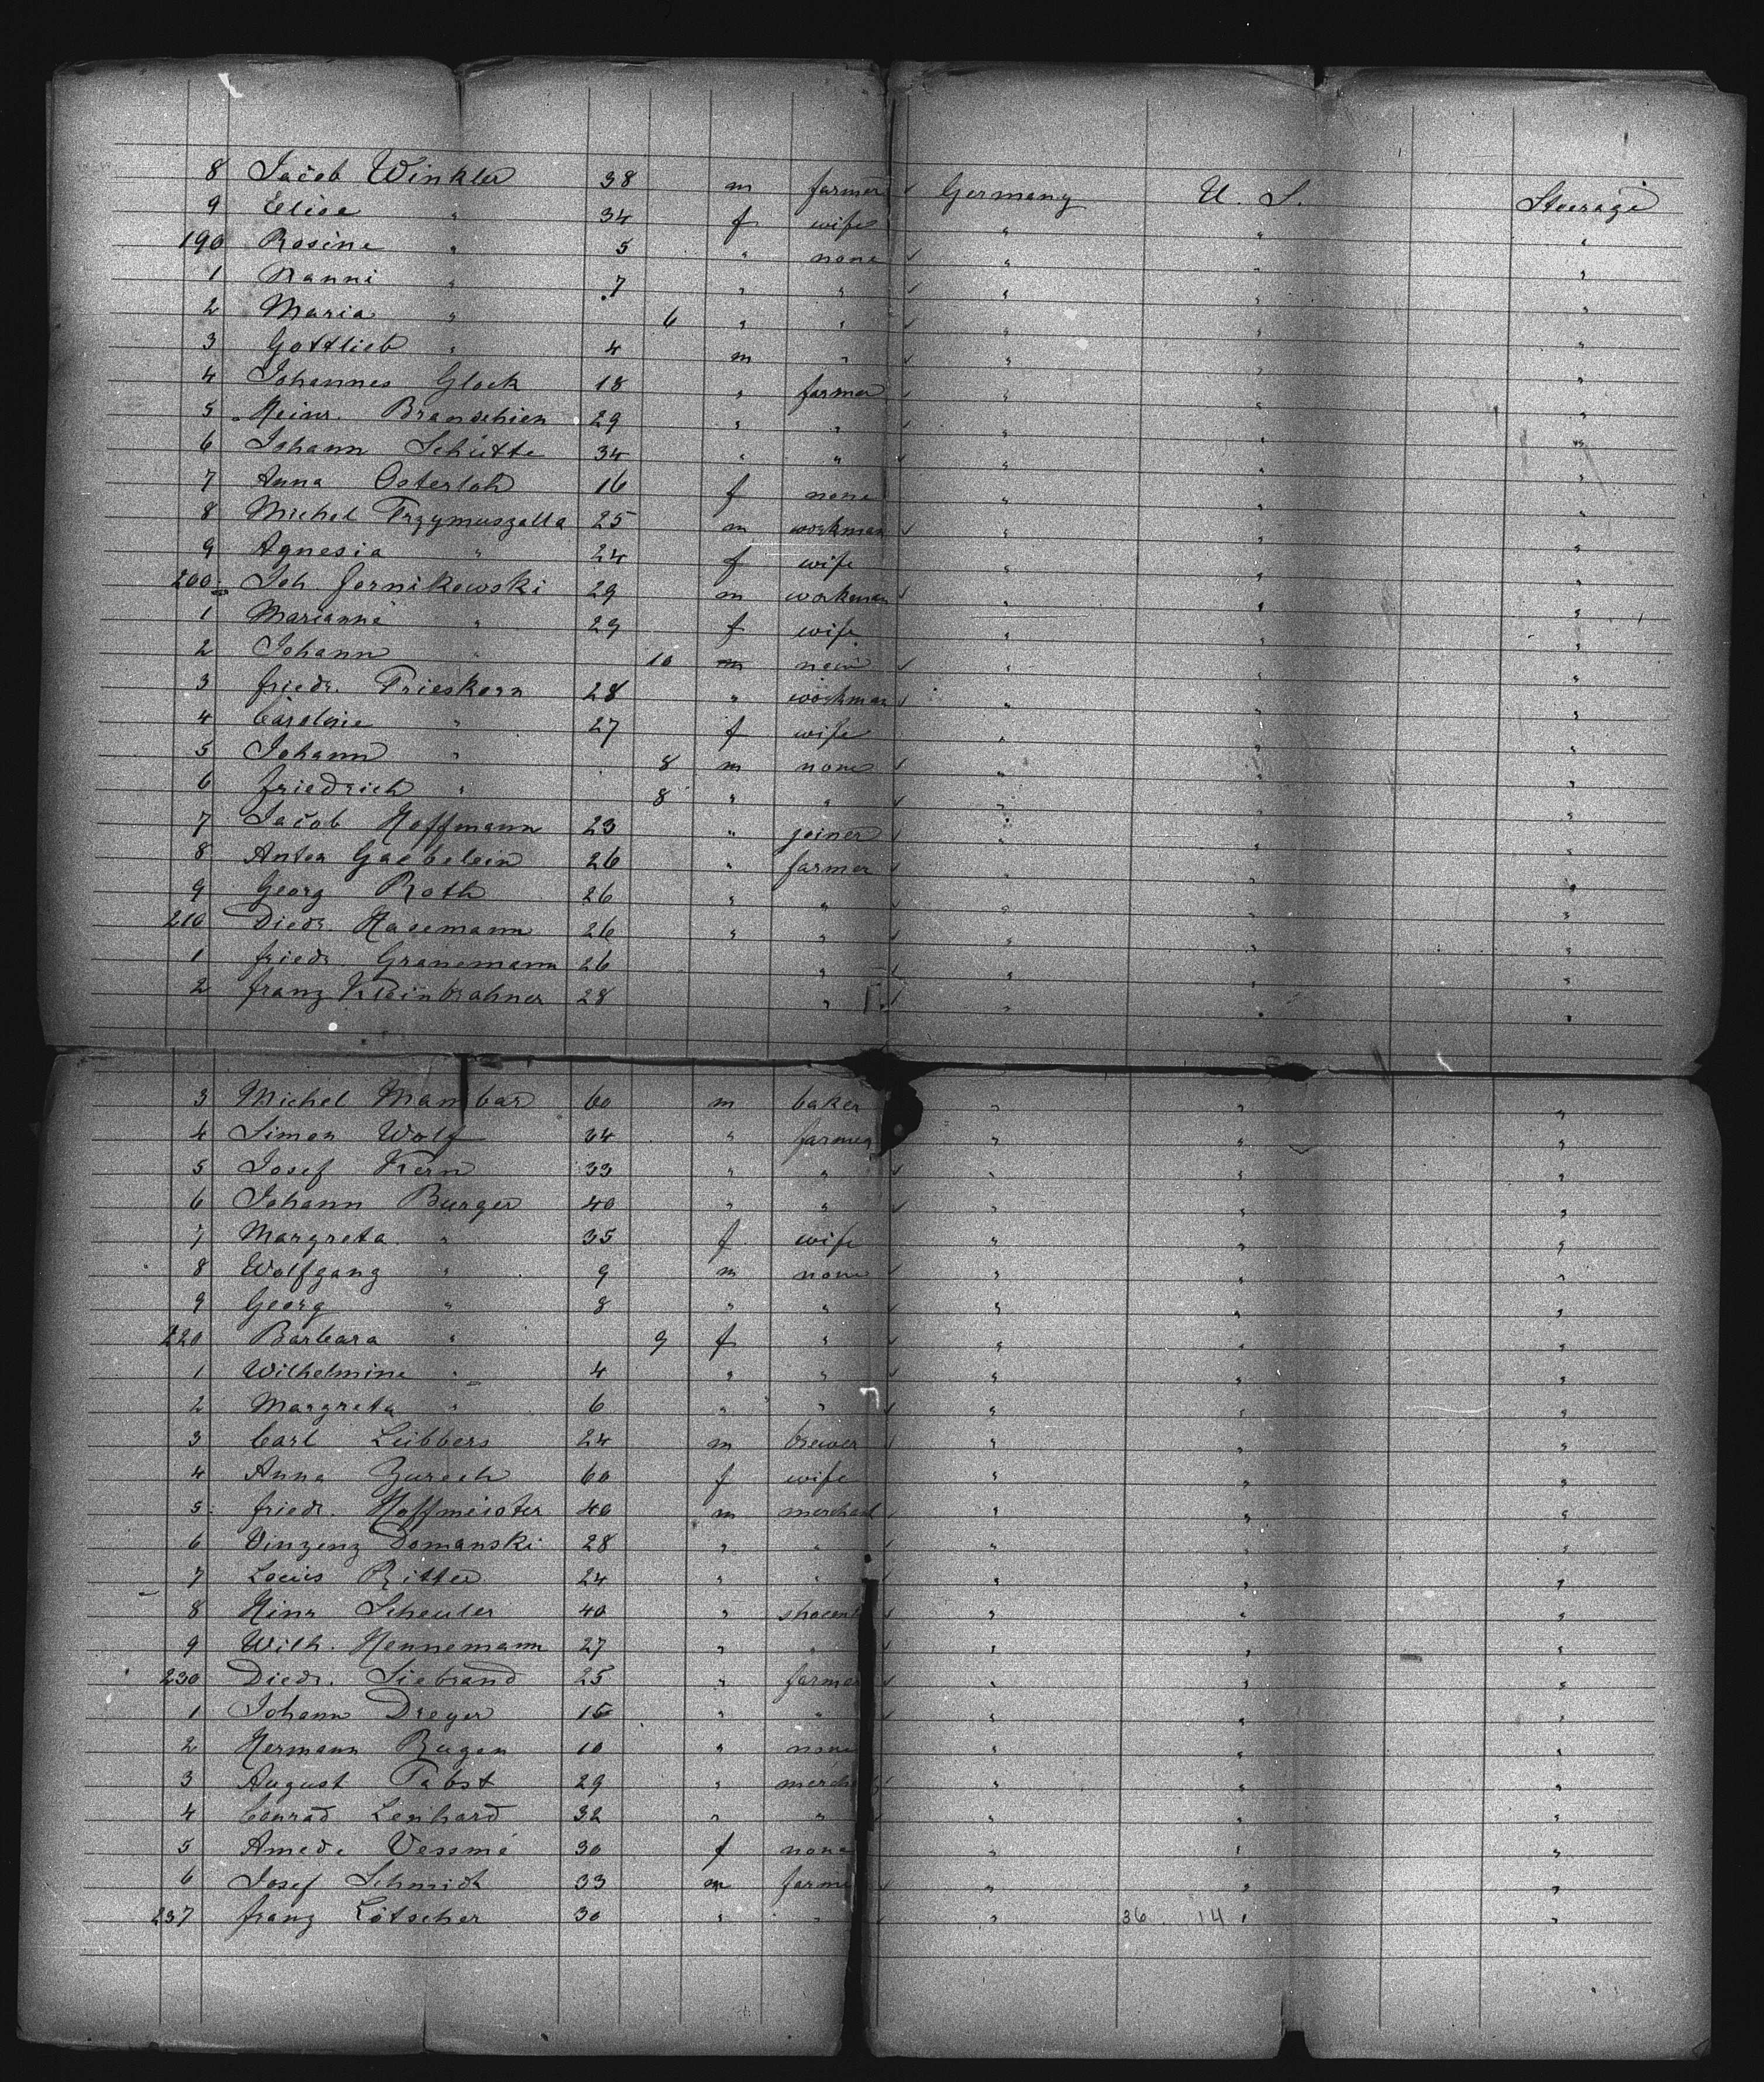 8 Jacob Winkler 38 m farmer ✓ Germany U. S. Steerage
9 Elise " 34 f wife " " "
190 Rosine " 5 " none ✓ " " "
1 Nanni " 7 " " ✓ " " "
2 Maria " 6 " " ✓ " " "
3 Gottlieb " 4 m " ✓ " " "
4 Johannes Glock 18 " farmer ✓ " " "
5 Heinr. 29 " " ✓ " " "
6 Johann Schütte 34 " " ✓ " " "
7 Anna Osterloh 16 f none " " "
8 Michel 25 m workman ✓ " " "
9 Agnesia " 24 f wife " " "
200 Joh. 29 m workman ✓ " " "
1 Marianne " 29 f wife " " "
2 Johann " 10 m ✓ " " "
3 Friedr. Frieskorn 28 " workman ✓ " " "
4 Caroline " 27 f wife " " "
5 Johann " 8 m none ✓ " " "
6 Friedrich " 8 " " ✓ " " "
7 Jacob Hoffmann 23 " joiner ✓ " " "
8 Anton Gaebelein 26 " farmer ✓ " " "
9 Georg Roth 26 " " ✓ " " "
210 Diedr. Hasemann 26 " " ✓ " " "
1 Friedr Granemann 26 " ✓ " " "
2 Franz 28 " ✓ " " "
3 Michel 60 m baker " " "
4 Simon Wolf 34 " farmer " " "
5 Josef Kern 33 " " ✓ " " "
6 Johann Burger 40 " " ✓ " " "
7 Margreta " 35 f wife " " "
8 Wolfgang " 9 m none ✓ " " "
9 Georg " 8 " " ✓ " " "
220 Barbara " 9 f " ✓ " " "
1 Wilhelmine " 4 " " ✓ " " "
2 Margreta " 6 " " ✓ " " "
3 Carl Lübbers 24 m brewer ✓ " " "
4 Anna 60 f wife " " "
5 Friedr. Hoffmeister 40 m merchant ✓ " " "
6 Vinzenz Domanski 28 " " ✓ " " "
7 Louis Ritter 24 " " ✓ " " "
8 Hinr Scheuler 40 " ✓ " " "
9 Wilh. Hennemann 27 " " ✓ " " "
230 Diedr. Siebrand 25 " farmer ✓ " " "
1 Johann Dreyer 15 " " ✓ " " "
2 Hermann Rugen 10 " none " " "
3 August Pabst 29 " merchant ✓ " " "
4 Conrad Lenhard 32 " " ✓ " " "
5 30 f none " " "
6 Josef Schmidt 33 m farmer ✓ " " "
237 Franz Lötscher 30 " " ✓ " 36 14 " "